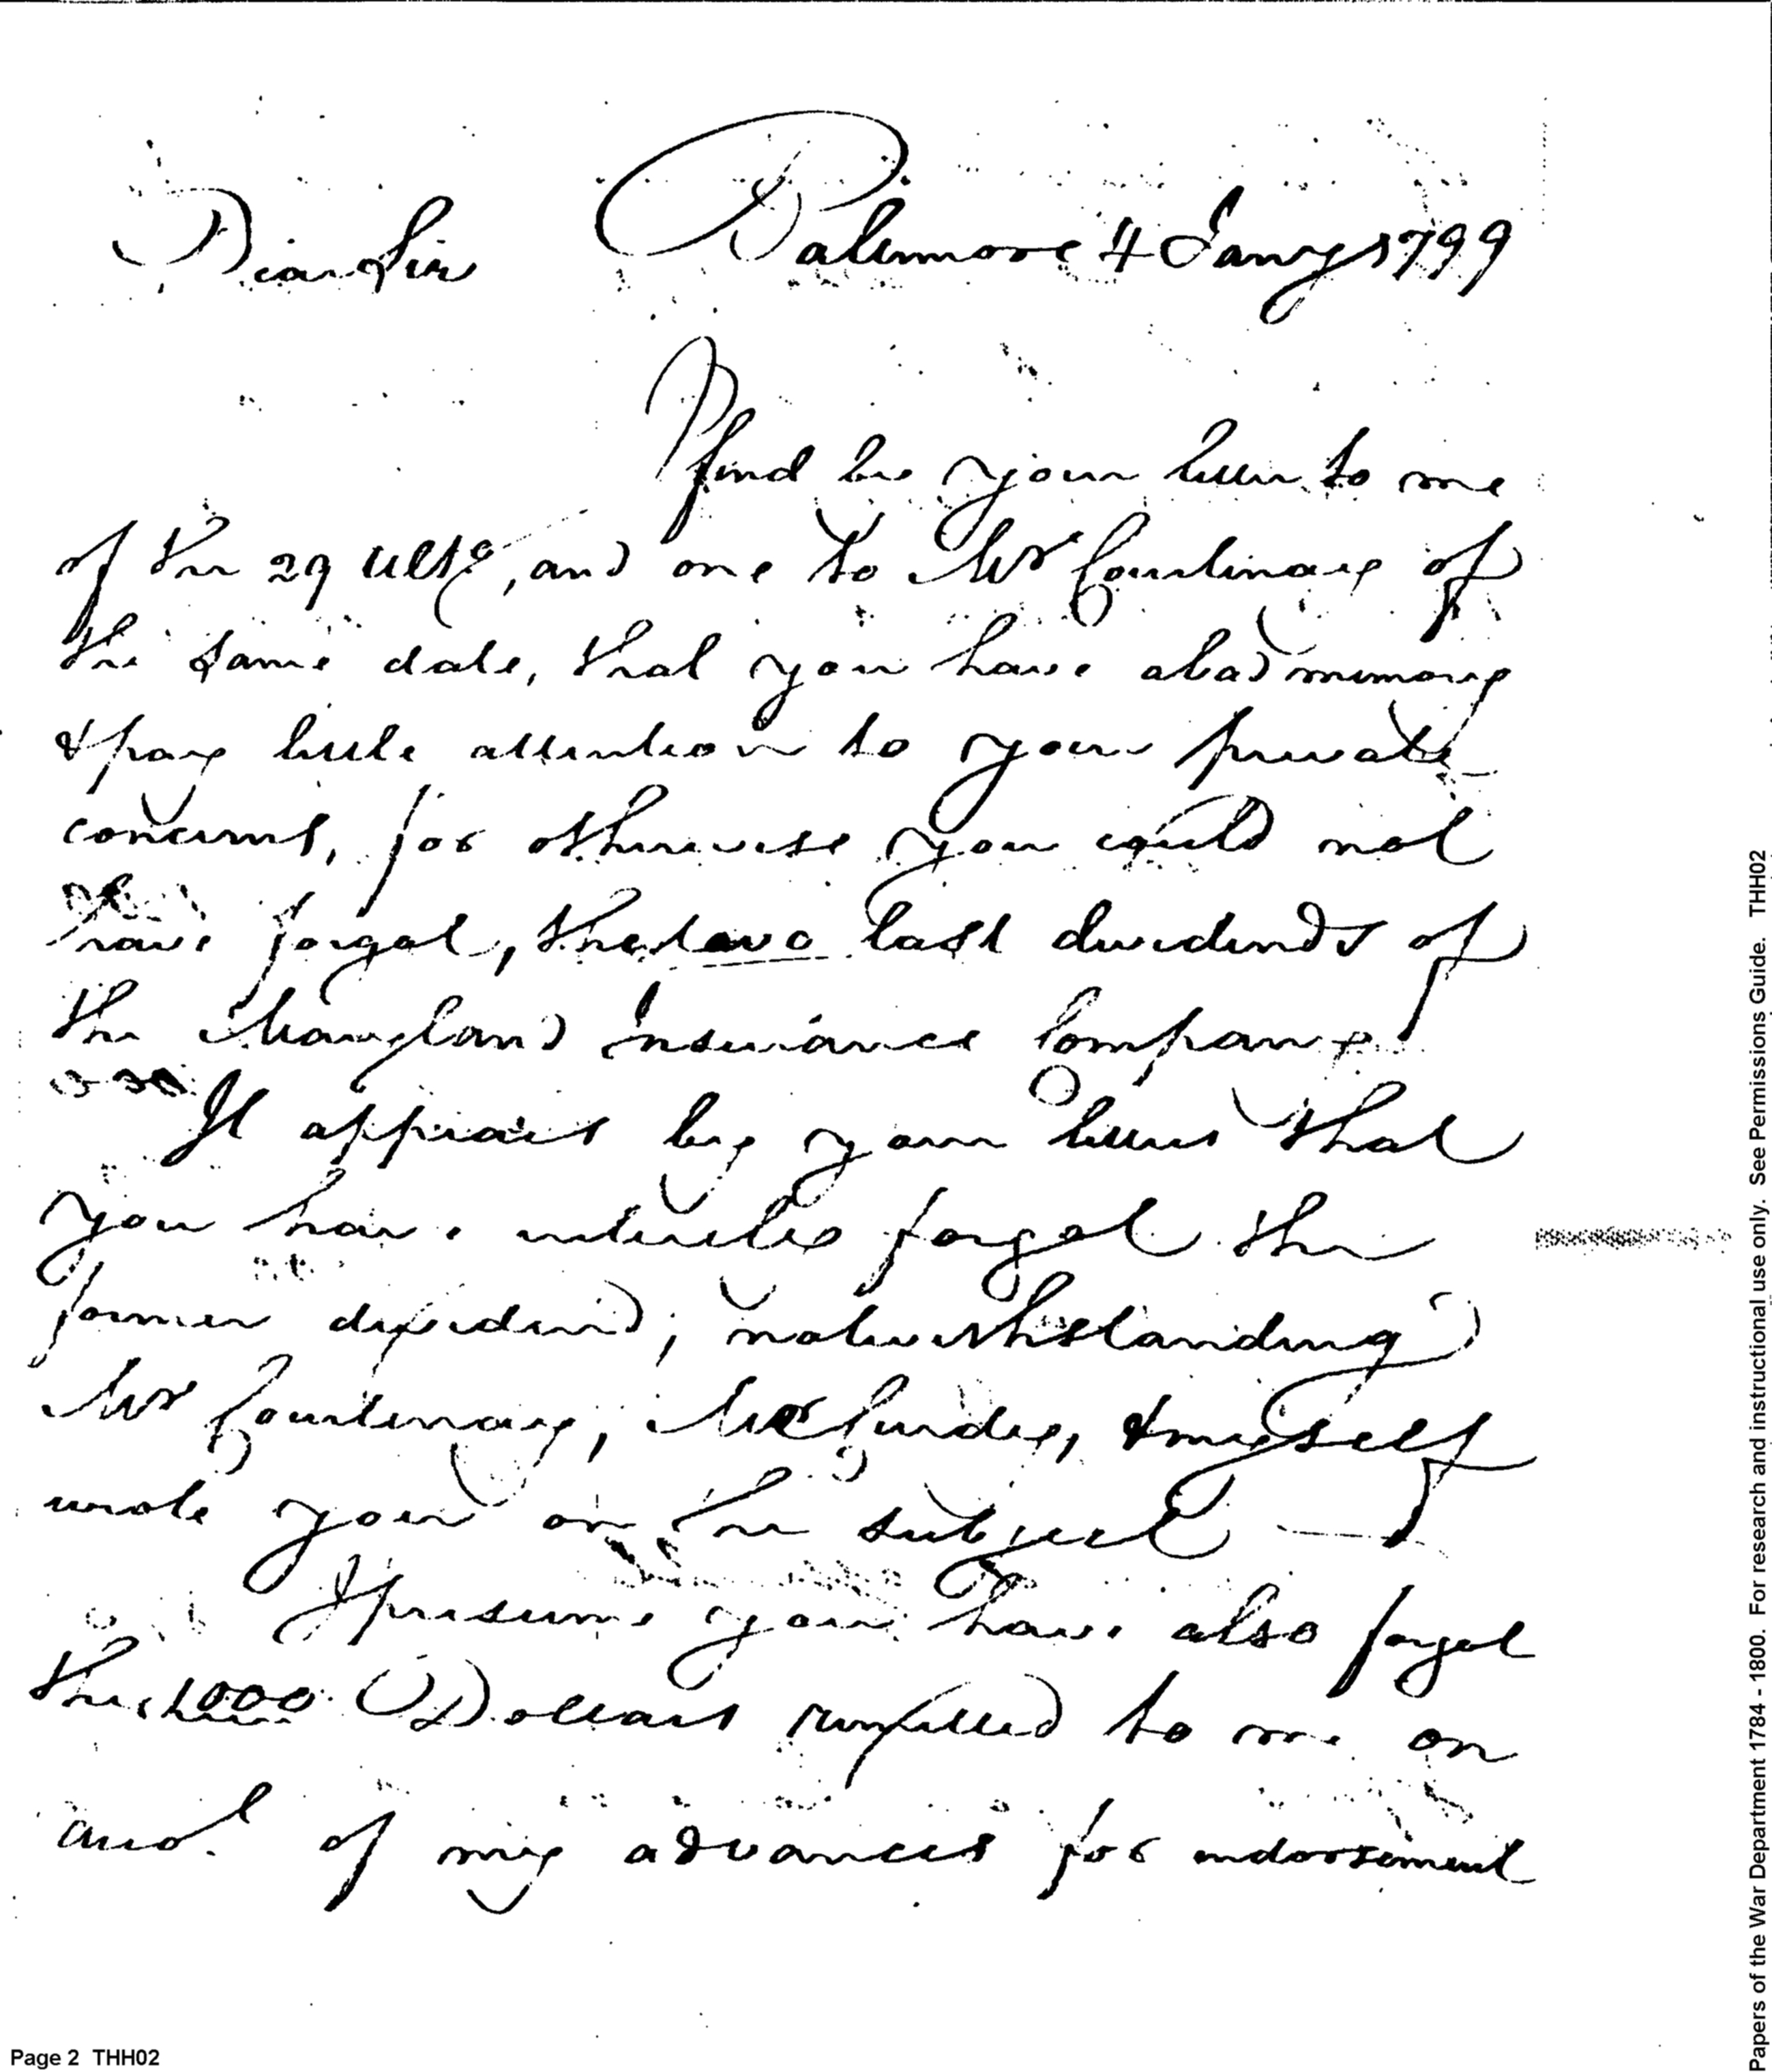 Dear Sir Baltimore 4 Jany 1799
I find by your letter to me
of the 29 Ulto, and one to Mr Courtenay of
the same date, that you have a bad memory
& pay little attention to your private
concerns, for otherwise you could not
have forgot, the two last dividends of
the Maryland Insurance Company
It appears by your letters that
you have entirely forgot the
former dividend, notwithstanding
Mr Courtenay, & myself
wrote you on the subject —
I presume you have also forgot
the 1000 Dollars remitted to me on
acco.t of my advances for endorsement
Page 2 THH02
Papers of the War Department 1784 - 1800. For research and instructional use only. See Permissions Guide. THH02